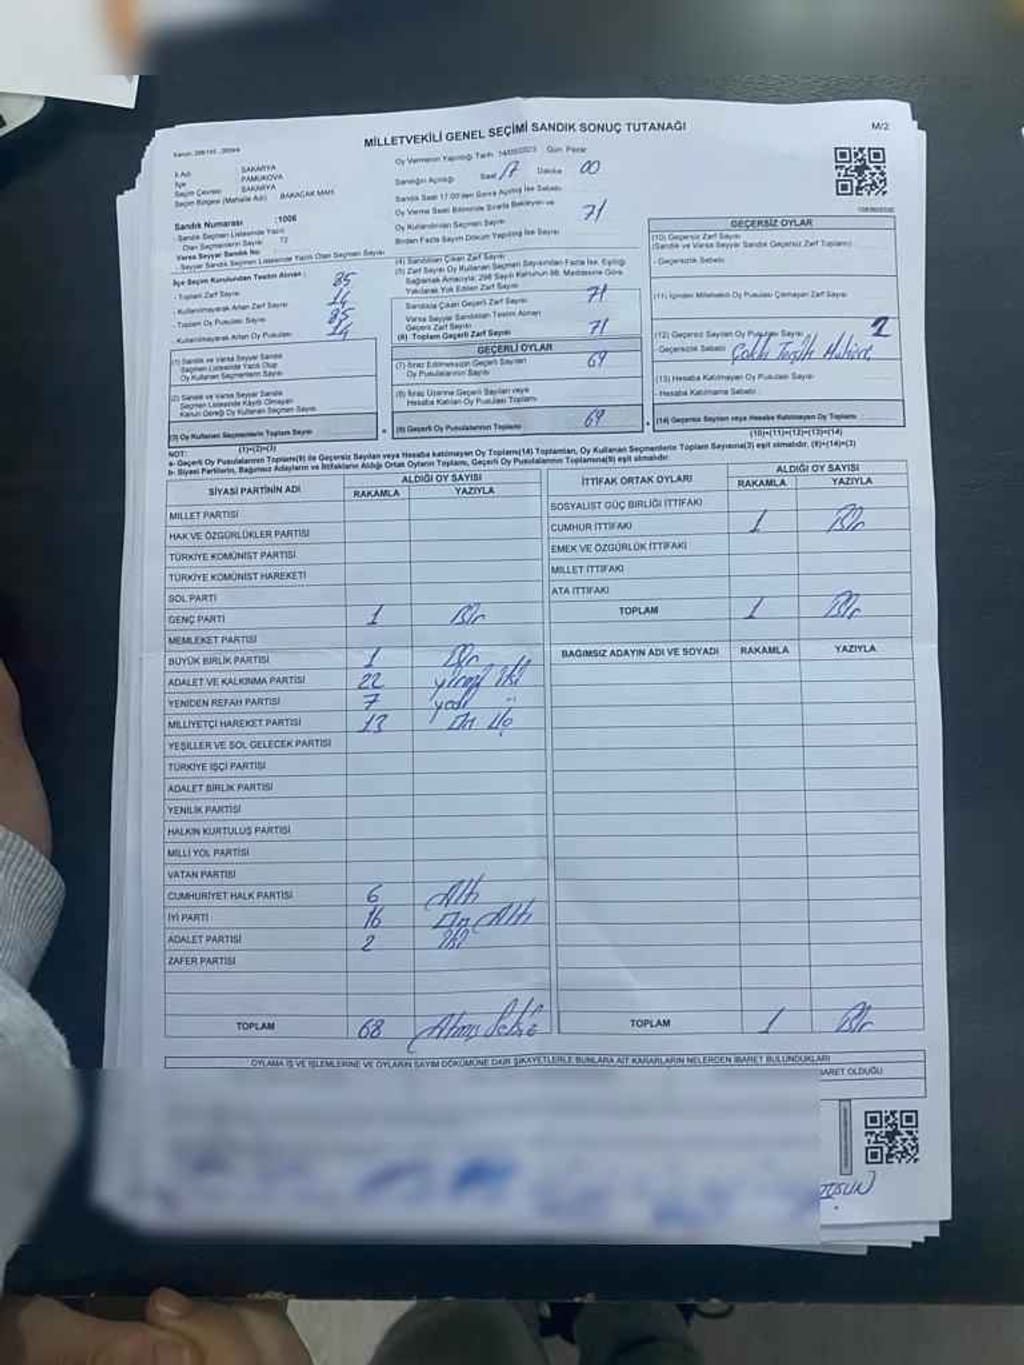 MİLLETVEKİLİ GENEL SEÇİMİ SANDIK SONUÇ TUTANAĞI
M/2
İl Adı : SAKARYA
İlçe : PAMUKOVA
Seçim Çevresi : SAKARYA
Seçim Bölgesi (Mahalle Adı) : BAKACAK MAH.
Sandık Numarası : 1006
- Sandık Seçmen Listesinde Yazılı
Olan Seçmenlerin Sayısı : 72
Varsa Seyyar Sandık No
- Seyyar Sandık Seçmen Listesinde Yazılı Olan Seçmen Sayısı
İlçe Seçim Kurulundan Teslim Alınan :
- Toplam Zarf Sayısı 85
- Kullanılmayarak Artan Zarf Sayısı 14
- Toplam Oy Pusulası Sayısı 85
- Kullanılmayarak Artan Oy Pusulası 14
(1) Sandık ve Varsa Seyyar Sandık
Seçmen Listesinde Yazılı Olup
Oy Kullanan Seçmen Sayısı
(2) Sandık ve Varsa Seyyar Sandık
Seçmen Listesinde Kayıtlı Olmayan
Kanun Gereği Oy Kullanan Seçmen Sayısı
(3) Oy Kullanan Seçmenlerin Toplam Sayısı
(1)+(2)=(3)
Oy Vermenin Yapıldığı Tarih: 14/05/2023 Gün: Pazar
Sandığın Açıldığı Saat 17 Dakika 00
Sandık Saat 17.00'den Sonra Açılmış İse Sebebi
Oy Verme Saati Bitiminde Sırada Bekleyen ve
Oy Kullandırılan Seçmen Sayısı 71
Birden Fazla Sayım Döküm Yapılmış İse Sayısı
(4) Sandıktan Çıkan Zarf Sayısı
(5) Zarf Sayısı Oy Kullanan Seçmen Sayısından Fazla İse, Eşitliği
Sağlamak Amacıyla; 298 Sayılı Kanunun 98. Maddesine Göre
Yakılarak Yok Edilen Zarf Sayısı
Sandıkta Çıkan Geçerli Zarf Sayısı 71
Varsa Seyyar Sandıktan Teslim Alınan
Geçerli Zarf Sayısı
(6) Toplam Geçerli Zarf Sayısı 71
GEÇERLİ OYLAR
(7) İtiraz Edilmeksizin Geçerli Sayılan
Oy Pusulalarının Sayısı 69
(8) İtiraz Üzerine Geçerli Sayılan veya
Hesaba Katılan Oy Pusulası Toplamı
(9) Geçerli Oy Pusulalarının Toplamı 69
GEÇERSİZ OYLAR
(10) Geçersiz Zarf Sayısı
(Sandık ve Varsa Seyyar Sandık Geçersiz Zarf Toplamı)
- Geçersizlik Sebebi
(11) İçinden Milletvekili Oy Pusulası Çıkmayan Zarf Sayısı
(12) Geçersiz Sayılan Oy Pusulası Sayısı 2
- Geçersizlik Sebebi Çoklu Tercih Mühürü
(13) Hesaba Katılmayan Oy Pusulası Sayısı
- Hesaba Katılmama Sebebi
(14) Geçersiz Sayılan veya Hesaba Katılmayan Oy Toplamı
(10)+(11)+(12)+(13)=(14)
NOT:
a- Geçerli Oy Pusulalarının Toplamı(9) ile Geçersiz Sayılan veya Hesaba Katılmayan Oy Toplamı(14) Toplamları, Oy Kullanan Seçmenlerin Toplam Sayısına(3) eşit olmalıdır. (9)+(14)=(3)
b- Siyasi Partilerin, Bağımsız Adayların ve İttifakların Aldığı Ortak Oyların Toplamı, Geçerli Oy Pusulalarının Toplamına(9) eşit olmalıdır.
SİYASİ PARTİNİN ADI ALDIĞI OY SAYISI
RAKAMLA YAZIYLA
MİLLET PARTİSİ
HAK VE ÖZGÜRLÜKLER PARTİSİ
TÜRKİYE KOMÜNİST PARTİSİ
TÜRKİYE KOMÜNİST HAREKETİ
SOL PARTİ
GENÇ PARTİ 1 Bir
MEMLEKET PARTİSİ
BÜYÜK BİRLİK PARTİSİ 1 Bir
ADALET VE KALKINMA PARTİSİ 22 yirmi iki
YENİDEN REFAH PARTİSİ 7 yedi
MİLLİYETÇİ HAREKET PARTİSİ 13 On Üç
YEŞİLLER VE SOL GELECEK PARTİSİ
TÜRKİYE İŞÇİ PARTİSİ
ADALET BİRLİK PARTİSİ
YENİLİK PARTİSİ
HALKIN KURTULUŞ PARTİSİ
MİLLİ YOL PARTİSİ
VATAN PARTİSİ
CUMHURİYET HALK PARTİSİ 6 Altı
İYİ PARTİ 16 On Altı
ADALET PARTİSİ 2 İki
ZAFER PARTİSİ
TOPLAM 68 Atmış Sekiz
İTTİFAK ORTAK OYLARI ALDIĞI OY SAYISI
RAKAMLA YAZIYLA
SOSYALİST GÜÇ BİRLİĞİ İTTİFAKI
CUMHUR İTTİFAKI 1 Bir
EMEK VE ÖZGÜRLÜK İTTİFAKI
MİLLET İTTİFAKI
ATA İTTİFAKI
TOPLAM 1 Bir
BAĞIMSIZ ADAYIN ADI VE SOYADI RAKAMLA YAZIYLA
TOPLAM 1 Bir
OYLAMA İŞ VE İŞLEMLERİNE VE OYLARIN SAYIM DÖKÜMÜNE DAİR ŞİKAYETLERLE BUNLARA AİT KARARLARIN NELERDEN İBARET BULUNDUKLARI
BARET OLDUĞU